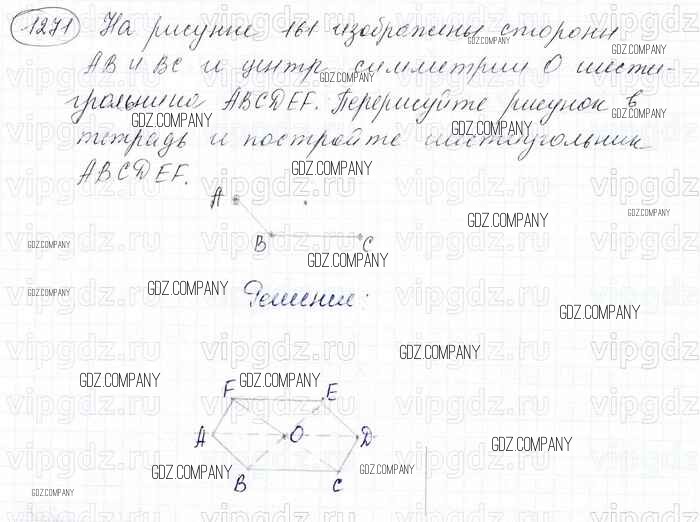 1271 На рисунке 161 изображены стороны
АВ и ВС и центр симметрии О шести-
угольника ABCDEF. Перерисуйте рисунок в
тетрадь и постройте шестиугольник
ABCDEF.
A
B
C
Решение:
F
E
A
O
D
B
C
GDZ.COMPANY
vipgdz.ru